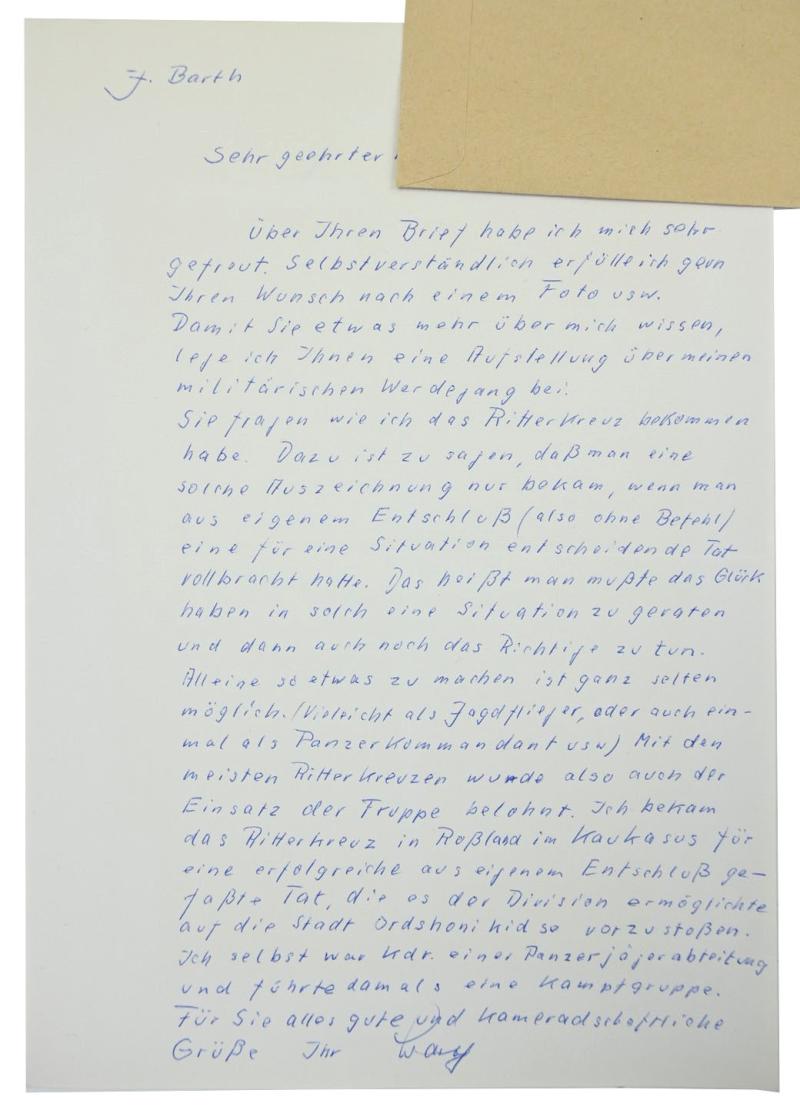 J. Barth
Sehr geehrter
Über Ihren Brief habe ich mich sehr
gefreut. Selbstverständlich erfülle ich gern
Ihren Wunsch nach einem Foto usw.
Damit Sie etwas mehr über mich wissen,
lege ich Ihnen eine Aufstellung über meinen
militärischen Werdegang bei.
Sie fragen wie ich das Ritterkreuz bekommen
habe. Dazu ist zu sagen, daß man eine
solche Auszeichnung nur bekam, wenn man
aus eigenem Entschluß (also ohne Befehl)
eine für eine Situation entscheidende Tat
vollbracht hatte. Das heißt man mußte das Glück
haben in solch eine Situation zu geraten
und dann auch noch das Richtige zu tun.
Alleine so etwas zu machen ist ganz selten
möglich. (Vieleicht als Jagdflieger, oder auch ein-
mal als Panzerkommandant usw) Mit den
meisten Ritterkreuzen wurde also auch der
Einsatz der Truppe belohnt. Ich bekam
das Ritterkreuz in Rußland im Kaukasus für
eine erfolgreiche aus eigenem Entschluß ge-
faßte Tat, die es der Division ermöglichte
auf die Stadt Ordshonikidse vorzustoßen.
Ich selbst war Kdr. einer Panzerjägerabteilung
und führte damals eine Kampfgruppe.
Für Sie alles gute und kameradschaftliche
Grüße Ihr